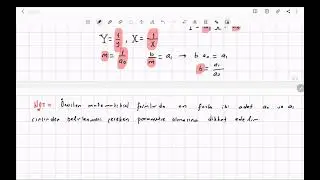 Y = 1/y , X = 1/x
m = 1/a₀ b/m = a₁ → b a₀ = a₁
b = a₁/a₀
Not = Önerilen matematiksel formlarda en fazla iki adet a₀ ve a₁
cinsinden belirlenmesi gereken parametre olmasına dikkat edelim.